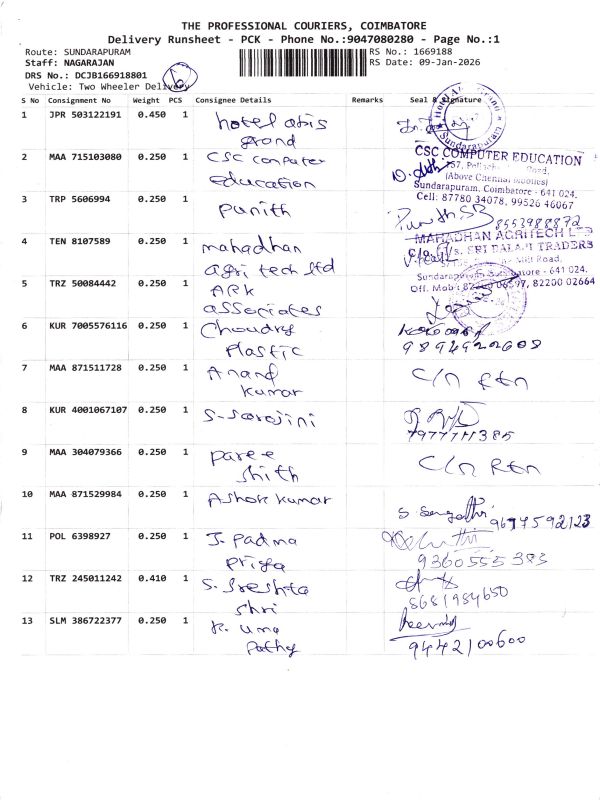 THE PROFESSIONAL COURIERS, COIMBATORE
Delivery Runsheet - PCK - Phone No.:9047080280 - Page No.:1
Route: SUNDARAPURAM
RS No.: 1669188
Staff: NAGARAJAN
RS Date: 09-Jan-2026
DRS No.: DCJB166918801
Vehicle: Two Wheeler Delivery
S No Consignment No Weight PCS Consignee Details Remarks Seal & Signature
1 JPR 503122191 0.450 1 hotel abis
grand
Sundarapuram
2 MAA 715103080 0.250 1 CSC computer
education
CSC COMPUTER EDUCATION
(Above Chennai Mobiles)
Sundarapuram, Coimbatore - 641 024.
Cell: 87780 34078, 99526 46067
3 TRP 5606994 0.250 1 punith
Punith SB
8553988872
4 TEN 8107589 0.250 1 mahadhan
agri tech ltd
MAHADHAN AGRITECH LTD
C/o. M/s. SRI BALAJI TRADERS
Mill Road,
Sundarapuram, Coimbatore - 641 024.
5 TRZ 50084442 0.250 1 ARK
associates
82200 02664
6 KUR 7005576116 0.250 1 Choudry
Plastic
9894922608
7 MAA 871511728 0.250 1 Anand
kumar
C/n Rtn
8 KUR 4001067107 0.250 1 S-Sarojini
7977711385
9 MAA 304079366 0.250 1 paree
shith
C/n Rtn
10 MAA 871529984 0.250 1 Ashok kumar
9677592123
11 POL 6398927 0.250 1 J. Padma
priya
9360555383
12 TRZ 245011242 0.410 1 S. Sreshta
shri
8681984650
13 SLM 386722377 0.250 1 K. Uma
pathy
9442100600